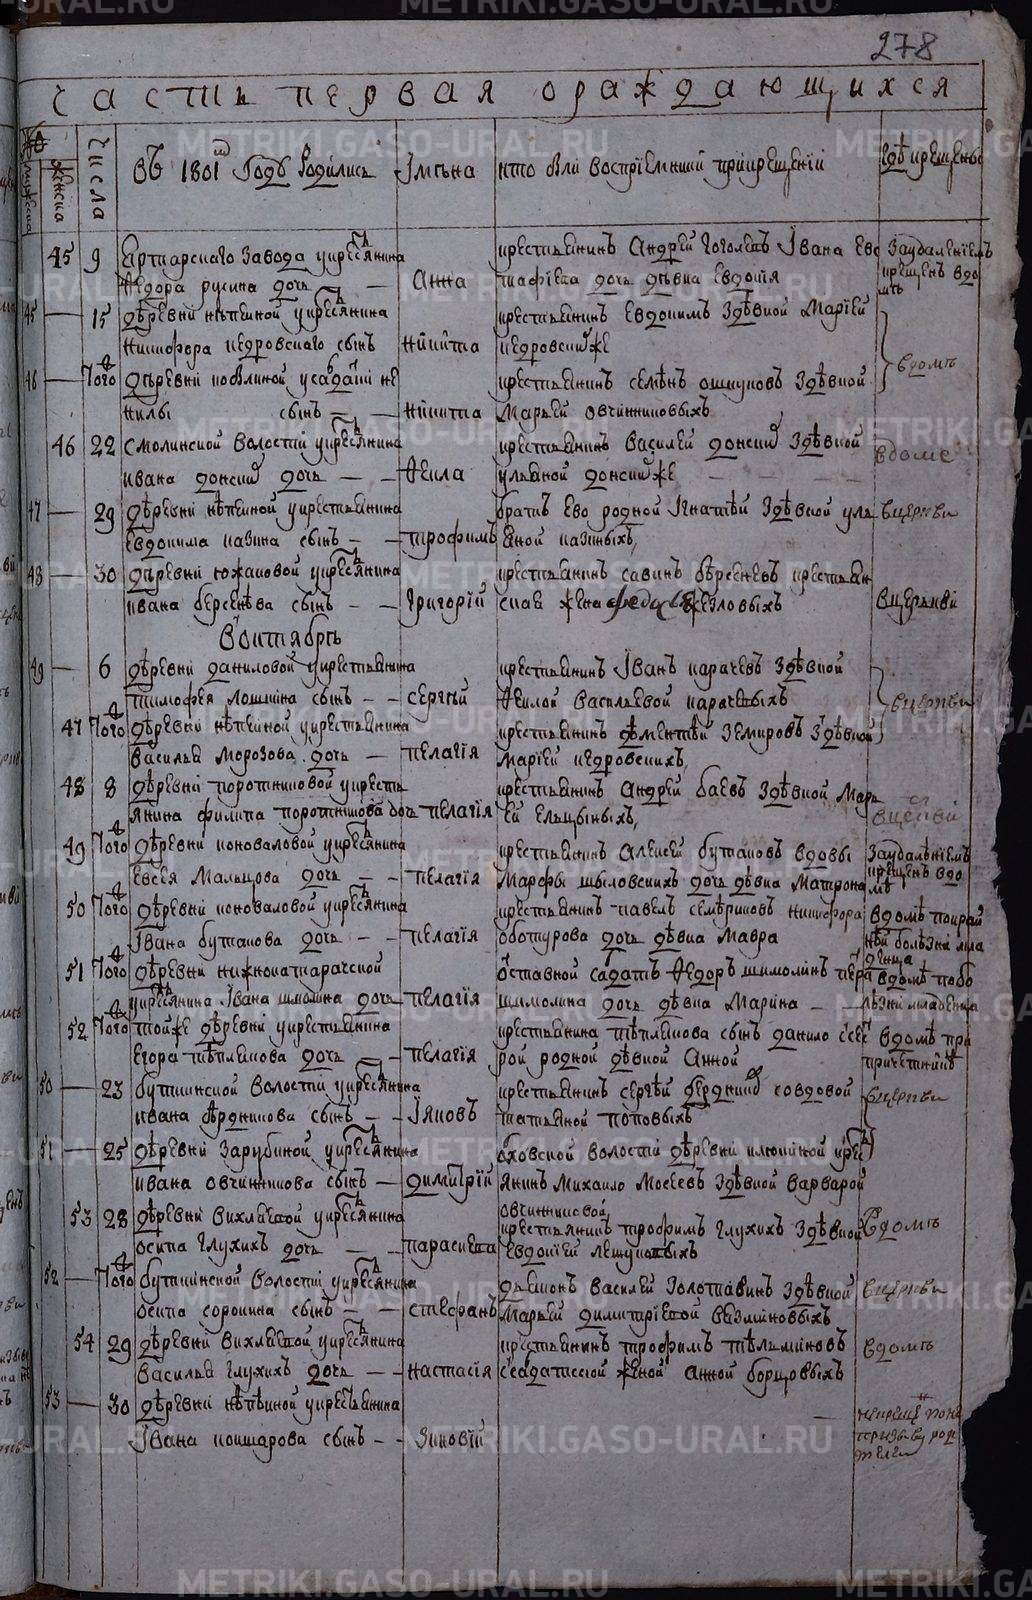 278
часть первая ораждающихся
въ 1801м годѣ родились
Імѣна
кто были воспріемники при крещеніи
гдѣ крещены
числа
женска
45 9 Артарскаго завода у крестьянина
Ѳедора русина дочь — Анна
крестьянинъ Андрей Гоголевъ Івана Евс
тафіева дочь дѣвка Евдокія
За удаленіемъ крещенъ в домѣ
45 — 15 дѣревни нѣпеиной у крестьянина
никифора кедровскаго сынъ никита
крестьянинъ Евдокимъ з дѣвкой Маріей
кедровски же
в домѣ
46 — Того деревни
сынъ — — никита
крестьянинъ семѣнъ ошкуковъ з дѣвкой
Марьей овчинниковыхъ
46 22 смолинской волости у крестьянина
ивана донских дочь — — Ѳекла
крестьянинъ василей донских з дѣвкой
ульяной донских же
в доме
47 — 29 дѣревни нѣпеиной у крестьянина
Евдокима казина сынъ — — трофимъ
братъ ево родной Игнатѣй з дѣвкой уль
яной казиныхъ,
в церкви
48 — 30 дѣревни южаковой у крестьянина
ивана берсенѣва сынъ — — Григорій
крестьянинъ савинъ бѣрсеневъ крестьян
ская жена
в церькви
В октябрѣ
49 — 6 дѣревни даниловой у крестьянина
тимофея лошкина сынъ — — сергѣй
крестьянинъ Іванъ карачевъ з дѣвкой
Ѳеклой васильевой карачевыхъ
в церкви
47 Того дѣревни нѣпеиной у крестьянина
василья морозова дочь — пелагія
крестьянинъ дѣментѣй земировъ з дѣвкой
маріей кедровскихъ,
48 8 дѣревни коротниковой у кресть
янина филипа коротникова дочь пелагія
крестьянинъ Андрей баевъ з дѣвкой Марь
ей Ельцыныхъ,
49 Того дѣревни коноваловой у крестьянина
Евсея Мальцова дочь — — пелагія
крестьянинъ Алексей бутаковъ вдовы
Марфы шыловскихъ дочь дѣвка Матрона
За удалѣніемъ крещенъ в домѣ
50 Того дѣревни коноваловой у крестьянина
Івана бутакова дочь — — пелагія
крестьянинъ павелъ семѣриковъ никифора
оботурова дочь дѣвка Мавра
в домѣ по край
нѣй болѣзни мла
денца
51 Того дѣревни нижнокатарачской
у крестьянина Івана шмолина дочь пелагія
оставной садатъ Ѳедоръ шмолинъ
шмолина дочь дѣвка Марина —
в домѣ по бо
лѣзни младенца
52 Того той же дѣревни у крестьянина
Егора тѣплякова дочь — — пелагія
крестьянина тѣплякова сынъ данило с сес
рой родной дѣвкой Анной
в домѣ при
причетникѣ
50 — 23 буткинской волости у крестьянина
ивана бѣрдникова сынъ — — Іяковъ
крестьянинъ сергѣй бердников со вдовой
татьяной поповыхъ
в церкви
51 — 25 дѣревни зарубиной у крестьянина
ивана овчинникова сынъ — димитрій
волости дѣревни крес
янинъ михаило мосеевъ з дѣвкой варварой
овчинниковой
53 28 дѣревни вихляевой у крестьянина
осипа глухихъ дочь — — параскева
крестьянинъ трофимъ глухихъ з дѣвкой
Евдокіей
в домѣ
52 — Того буткинской волости у крестьянина
осипа сорокина сынъ — — стефанъ
дьяконъ василей золотавинъ з дѣвкой
Марьей димитріевой
в церкви
54 29 дѣревни вихляевой у крестьянина
василья глухихъ дочь — — настасія
крестьянинъ трофимъ тѣльминовъ
с садатской женой Анной борцовыхъ
в домѣ
53 — 30 дѣревни нѣпѣиной у крестьянина
Івана кошкарова сынъ — — зиновій